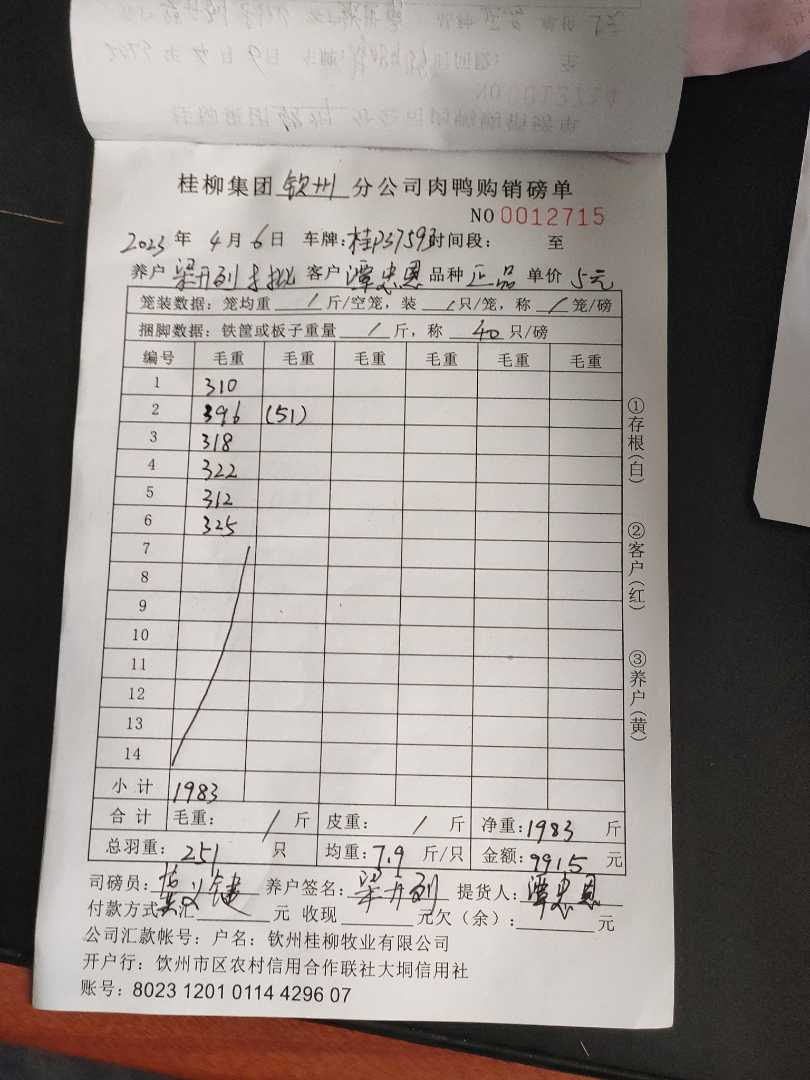 桂柳集团 钦州 分公司肉鸭购销磅单
NO 0012715
2023 年 4 月 6 日 车牌:桂P37593 时间段: 至
养户 梁开列 客户 潭忠恩 品种 正品 单价 5元
笼装数据: 笼均重 / 斤/空笼, 装 / 只/笼, 称 / 笼/磅
捆脚数据: 铁筐或板子重量 / 斤, 称 40 只/磅
编号 毛重 毛重 毛重 毛重 毛重 毛重
1 310
2 396 (51)
3 318
4 322
5 312
6 325
7
8
9
10
11
12
13
14
小 计 1983
合 计 毛重: / 斤 皮重: / 斤 净重: 1983 斤
总羽重: 251 只 均重: 7.9 斤/只 金额: 9915 元
司磅员: 养户签名: 梁开列 提货人: 潭忠恩
付款方式: 汇 元 收现 元欠(余): 元
公司汇款帐号: 户名: 钦州桂柳牧业有限公司
开户行: 钦州市区农村信用合作联社大垌信用社
账号: 8023 1201 0114 4296 07
①存根(白)
②客户(红)
③养户(黄)